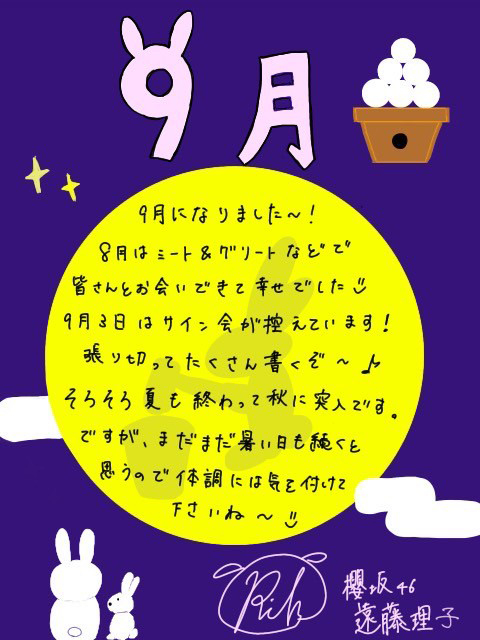 9月
9月になりました〜!
8月はミート&グリートなどで
皆さんとお会いできて幸せでした
9月3日はサイン会が控えています!
張り切ってたくさん書くぞ〜♪
そろそろ夏も終わって秋に突入です。
ですが、まだまだ暑い日も続くと
思うので体調には気を付けて
下さいね〜
Rik
櫻坂46
遠藤理子